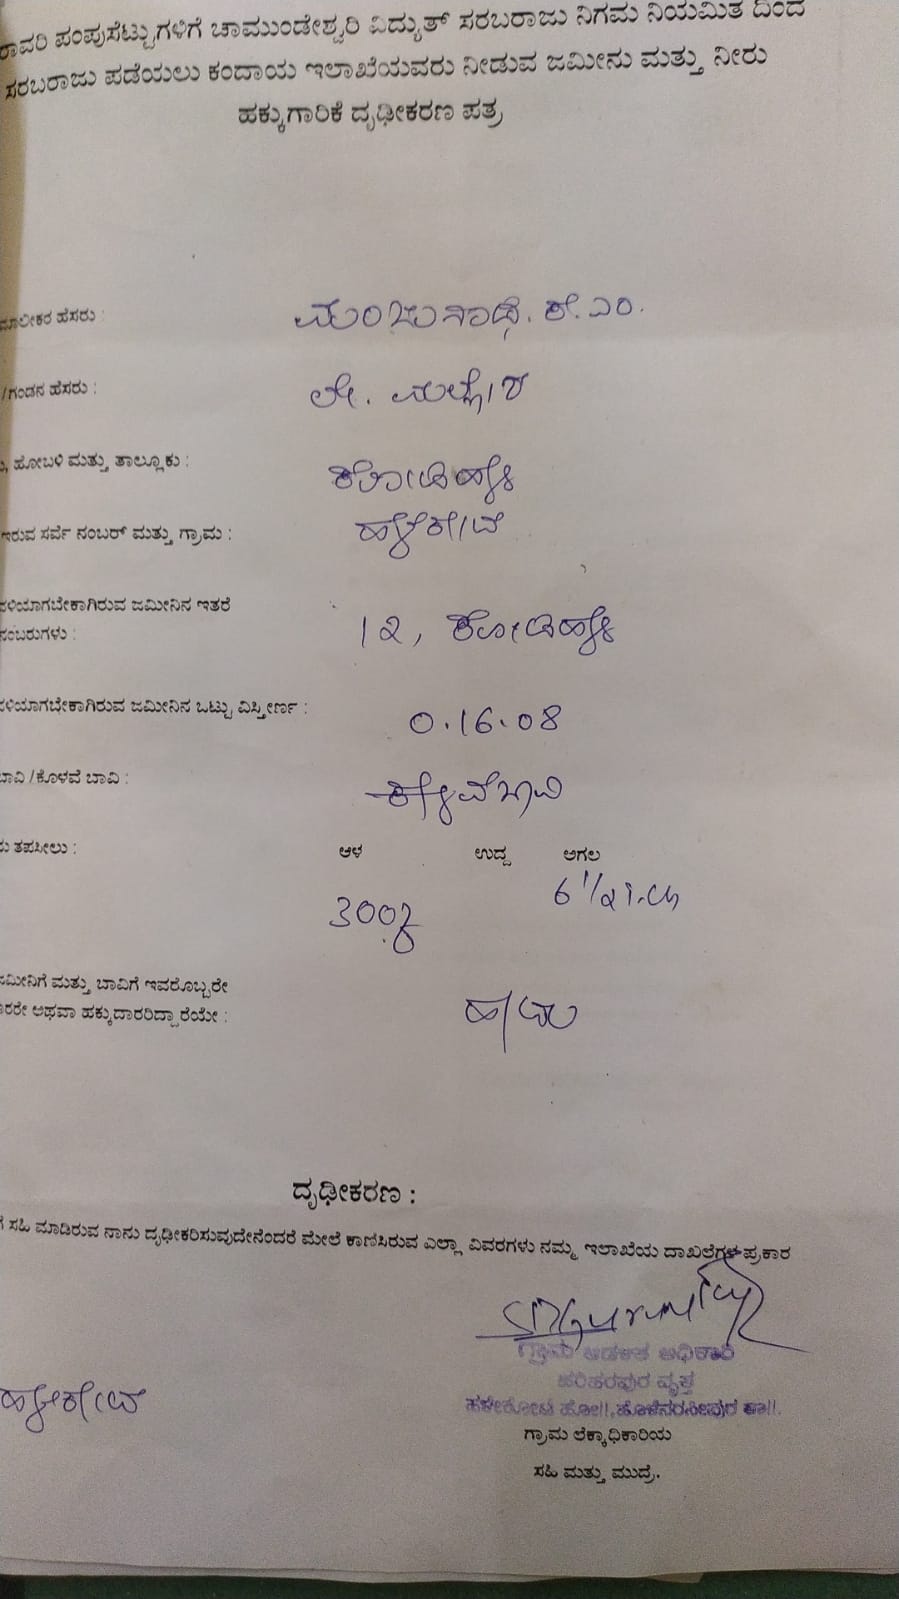 ರಾವರಿ ಪಂಪುಸೆಟ್ಟುಗಳಿಗೆ ಚಾಮುಂಡೇಶ್ವರಿ ವಿದ್ಯುತ್ ಸರಬರಾಜು ನಿಗಮ ನಿಯಮಿತ ದಿಂದ
ಸರಬರಾಜು ಪಡೆಯಲು ಕಂದಾಯ ಇಲಾಖೆಯವರು ನೀಡುವ ಜಮೀನು ಮತ್ತು ನೀರು
ಹಕ್ಕುಗಾರಿಕೆ ದೃಢೀಕರಣ ಪತ್ರ
ಮಾಲೀಕರ ಹೆಸರು : ಮಂಜುನಾಥ. ಕೆ. ಎಂ.
/ಗಂಡನ ಹೆಸರು : ಲೇ. ಮಲ್ಲೇಶ
, ಹೋಬಳಿ ಮತ್ತು ತಾಲ್ಲೂಕು : ಕೋಡಿಹಳ್ಳಿ
ಇರುವ ಸರ್ವೆ ನಂಬರ್ ಮತ್ತು ಗ್ರಾಮ : ಹಳೇಕೋಟೆ
ಳಿಯಾಗಬೇಕಾಗಿರುವ ಜಮೀನಿನ ಇತರೆ
ನಂಬರುಗಳು : 12, ಕೋಡಿಹಳ್ಳಿ
ಳಿಯಾಗಬೇಕಾಗಿರುವ ಜಮೀನಿನ ಒಟ್ಟು ವಿಸ್ತೀರ್ಣ : 0.16.08
ಬಾವಿ /ಕೊಳವೆ ಬಾವಿ : ಕೊಳವೆಬಾವಿ
ತಪಸೀಲು : ಆಳ ಉದ್ದ ಅಗಲ
300 6 1/2
ಜಮೀನಿಗೆ ಮತ್ತು ಬಾವಿಗೆ ಇವರೊಬ್ಬರೇ
ರರೇ ಅಥವಾ ಹಕ್ಕುದಾರರಿದ್ದಾರೆಯೇ : ಹೌದು
ದೃಢೀಕರಣ :
ಸಹಿ ಮಾಡಿರುವ ನಾನು ದೃಢೀಕರಿಸುವುದೇನೆಂದರೆ ಮೇಲೆ ಕಾಣಿಸಿರುವ ಎಲ್ಲಾ ವಿವರಗಳು ನಮ್ಮ ಇಲಾಖೆಯ ದಾಖಲೆಗಳ ಪ್ರಕಾರ
ಗ್ರಾಮ ಆಡಳಿತ ಅಧಿಕಾರಿ
ಹರಿಹರಪುರ ವೃತ್ತ
ಹಳೇಕೋಟೆ ಹೋ||, ಹೊಳೆನರಸೀಪುರ ತಾ||.
ಹಳೇಕೋಟೆ
ಗ್ರಾಮ ಲೆಕ್ಕಾಧಿಕಾರಿಯ
ಸಹಿ ಮತ್ತು ಮುದ್ರೆ.